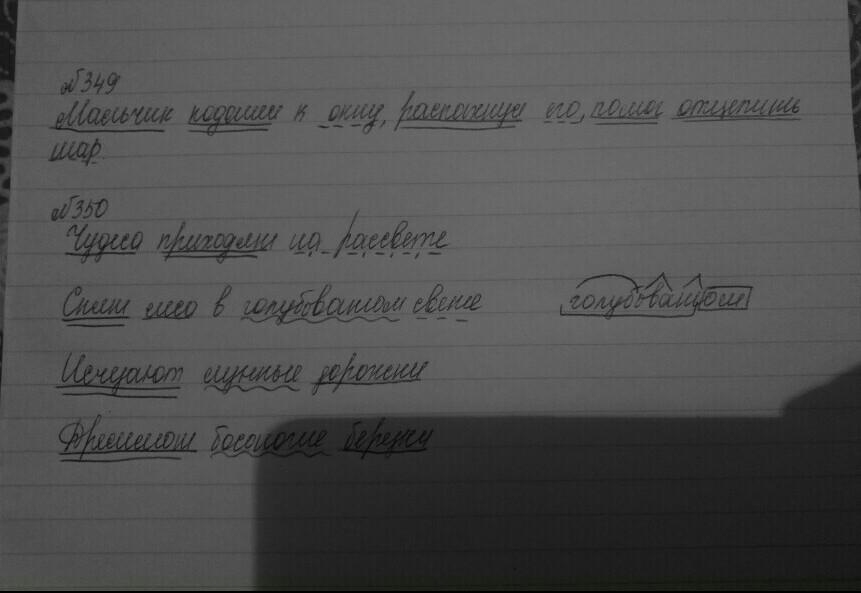 №349
Мальчик подошел к окну, распахнул его, помог отцепить
шар.
№350
Чудеса приходят на рассвете
Спит лес в голубоватом свете голубоватом
Исчезают лунные дорожки
Дремлют босоногие березки